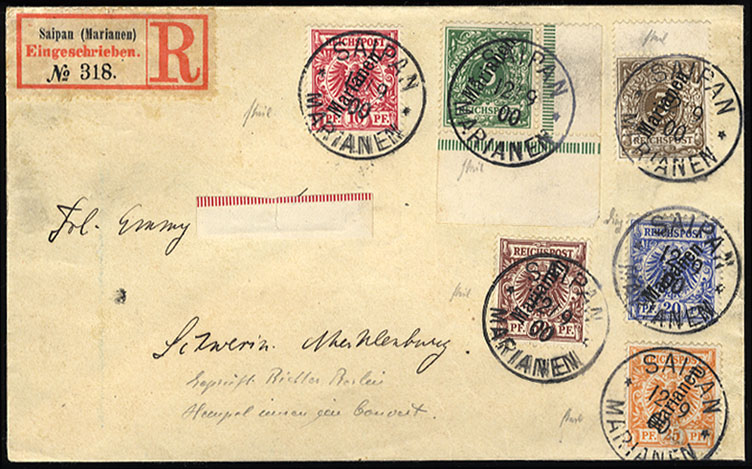 Saipan (Marianen)
Eingeschrieben.
№ 318.
R
REICHSPOST
Marianen
PF. 10 PF.
SAIPAN
12 9
00
MARIANEN
Marianen
5
SAIPAN
12 9
00
MARIANEN
REICHSPOST
Marianen
SAIPAN
9
00
MARIANEN
Frl. Emmy
REICHSPOST
Marianen
PF. PF.
SAIPAN
12 9
00
MARIANEN
REICHSPOST
Marianen
20
SAIPAN
12 9
00
MARIANEN
REICHSPOST
Marianen
PF. 25 PF.
SAIPAN
12 9
00
MARIANEN
Schwerin. Mecklenburg.
Geprüft Richter Berlin
Stempel innen im Couvert.